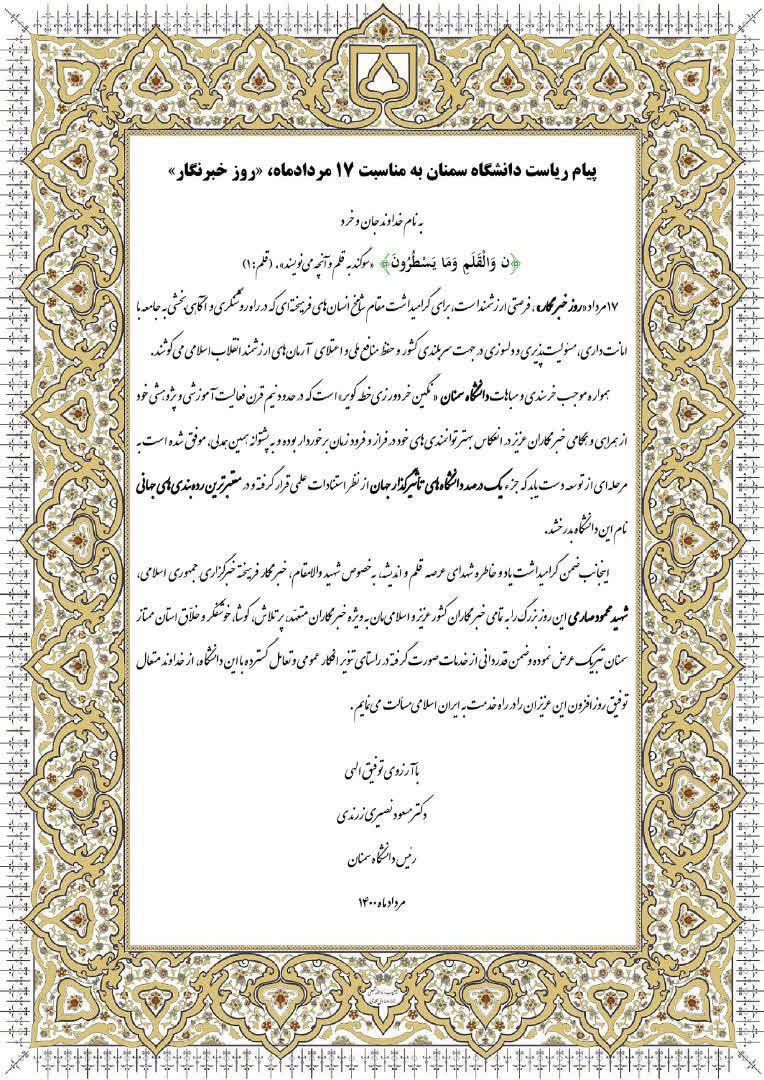 پیام ریاست دانشگاه سمنان به مناسبت ۱۷ مردادماه، «روز خبرنگار»
به نام خداوند جان و خرد
﴿ن وَالْقَلَمِ وَمَا يَسْطُرُونَ﴾ «سوگند به قلم و آنچه می‌نویسند». (قلم:۱)
۱۷مرداد «روز خبرنگار»، فرصتی ارزشمند است، برای گرامیداشت مقام شامخ انسان‌های فرهیخته‌ای که در راه روشنگری و آگاهی بخشی به جامعه با
امانت‌داری، مسئولیت‌پذیری و دلسوزی در جهت سربلندی کشور و حفظ منافع ملی و اعتلای آرمان‌های ارزشمند انقلاب اسلامی می‌کوشند.
همواره موجب خرسندی و مباهات دانشگاه سمنان «نگین خردورزی خطه کویر» است که در حدود نیم قرن فعالیت آموزشی و پژوهشی خود
از همراهی و همگامی خبرنگاران عزیز در انعکاس بهتر توانمندی‌های خود در فراز و فرود زمان برخوردار بوده و به پشتوانه همین همدلی، موفق شده است به
مرحله‌ای از توسعه دست یابد که جزء یک درصد دانشگاه‌های تأثیرگذار جهان از نظر استنادات علمی قرار گرفته و در معتبرترین رده‌بندی‌های جهانی
نام این دانشگاه بدرخشد.
اینجانب ضمن گرامیداشت یاد و خاطره شهدای عرصه قلم و اندیشه، به خصوص شهید والامقام، خبرنگار فرهیخته خبرگزاری جمهوری اسلامی،
شهید محمود صارمی این روز بزرگ را به تمامی خبرنگاران کشور عزیز و اسلامی‌مان به ویژه خبرنگاران متعهد، پرتلاش، کوشا، خوشفکر و خلاق استان ممتاز
سمنان تبریک عرض نموده و ضمن قدردانی از خدمات صورت گرفته در راستای تنویر افکار عمومی و تعامل گسترده با این دانشگاه، از خداوند متعال
توفیق روزافزون این عزیزان را در راه خدمت به ایران اسلامی مسالت می‌نمایم.
با آرزوی توفیق الهی
دکتر مسعود نصیری زرندی
رئیس دانشگاه سمنان
مردادماه ۱۴۰۰